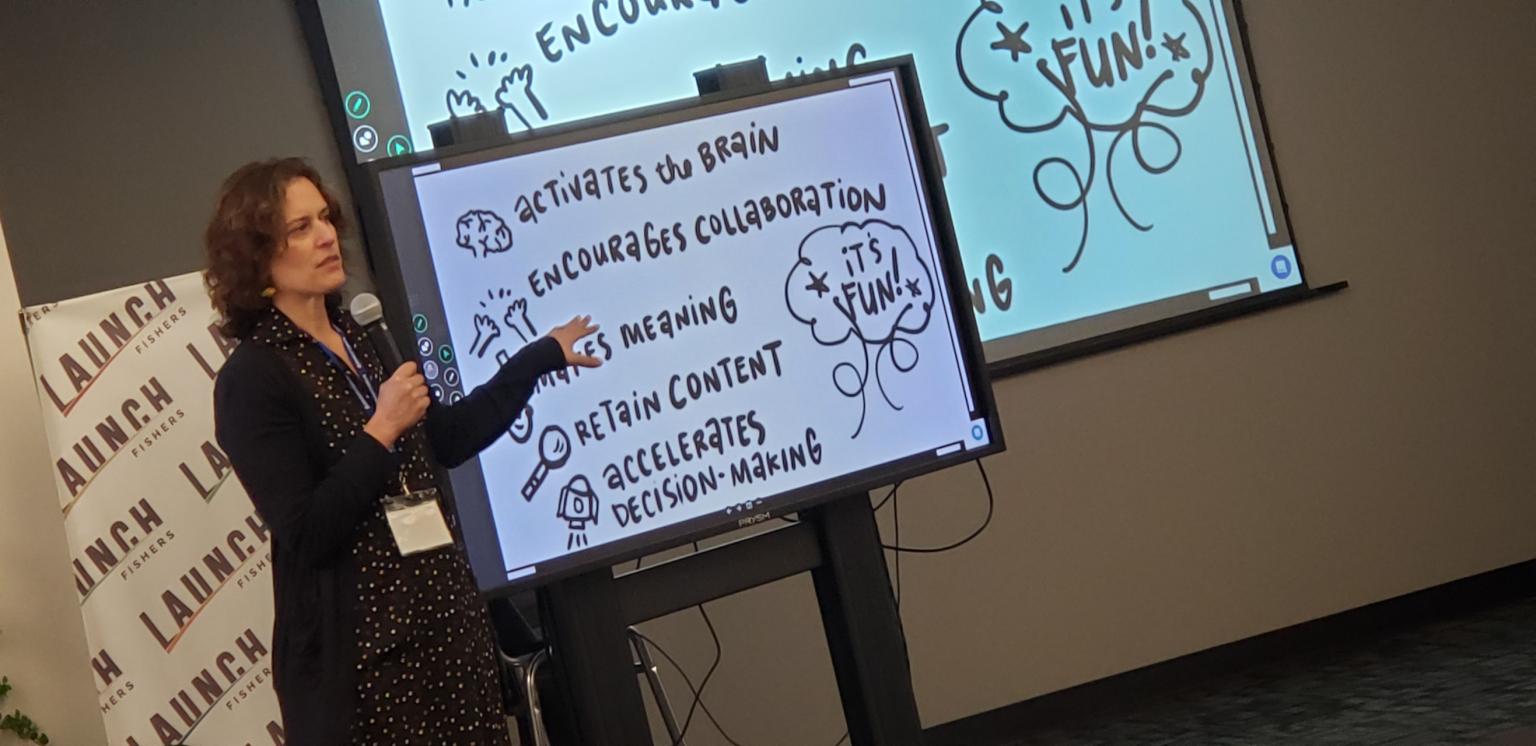 ENCOURAG
IT'S
FUN!
NG
ACTIVATES the BRAIN
ENCOURAGES COLLABORATION
MAKES MEANING
RETAIN CONTENT
ACCELERATES
DECISION-MAKING
IT'S
FUN!
PRYSM
LAUNCH
FISHERS
LAUNCH
FISHERS
LAUNCH
FISHERS
LAUNCH
FISHERS
LAUNCH
FISHERS